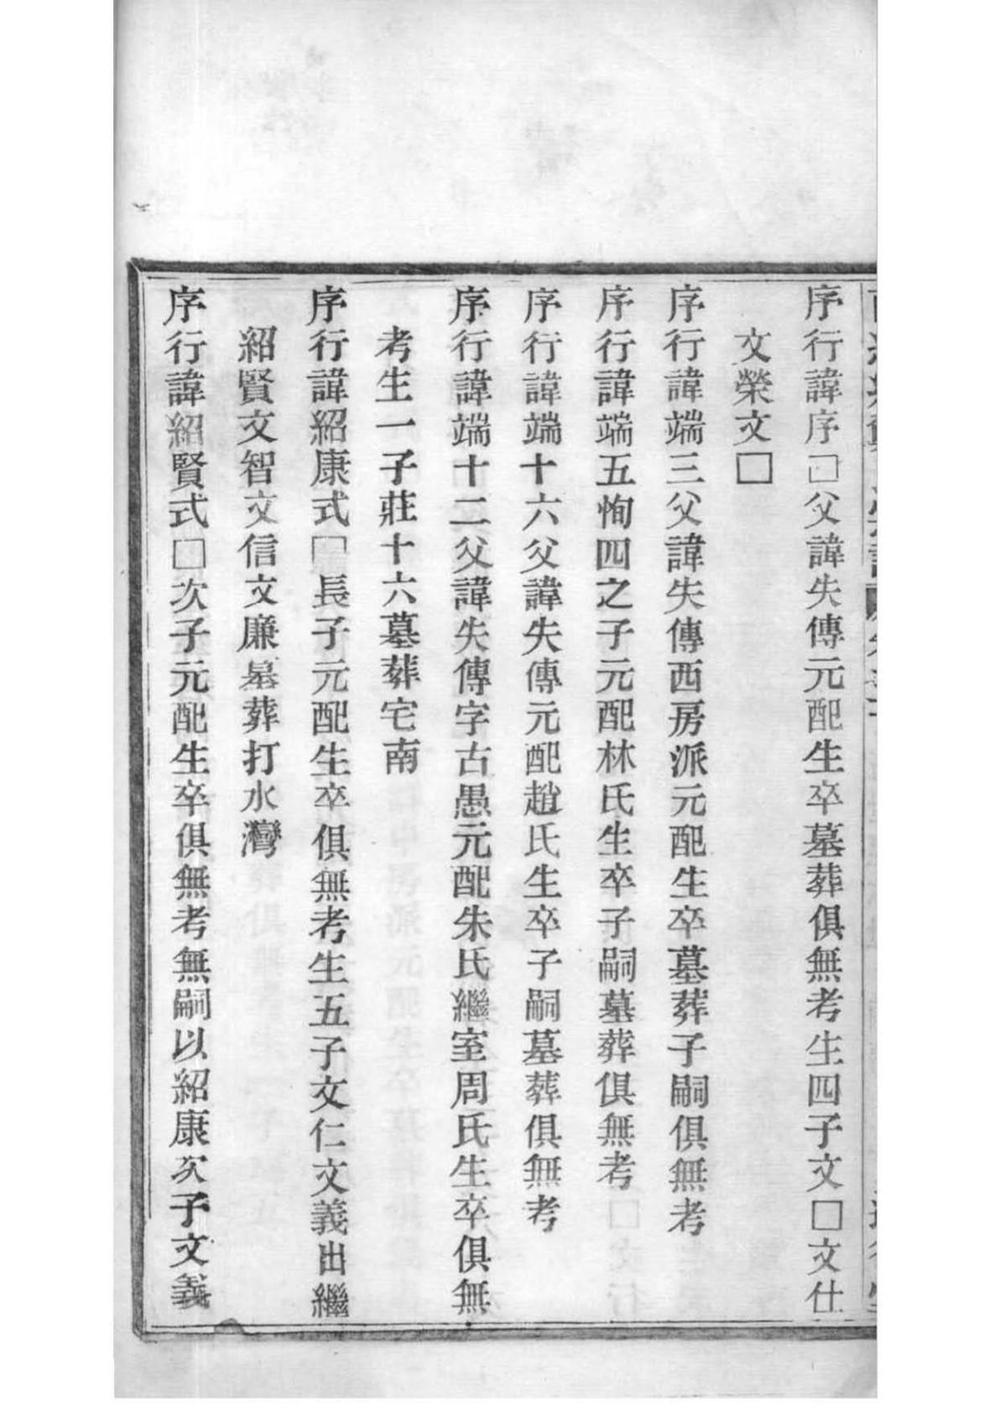 序行諱序□父諱失傳元配生卒墓葬俱無考生四子文□文仕
文榮文□
序行諱端三父諱失傳西房派元配生卒墓葬子嗣俱無考
序行諱端五恂四之子元配林氏生卒子嗣墓葬俱無考
序行諱端十六父諱失傳元配趙氏生卒子嗣墓葬俱無考
序行諱端十二父諱失傳字古愚元配朱氏繼室周氏生卒俱無
考生一子莊十六墓葬宅南
序行諱紹康式□長子元配生卒俱無考生五子文仁文義出繼
紹賢文智文信文廉墓葬打水灣
序行諱紹賢式□次子元配生卒俱無考無嗣以紹康次子文義